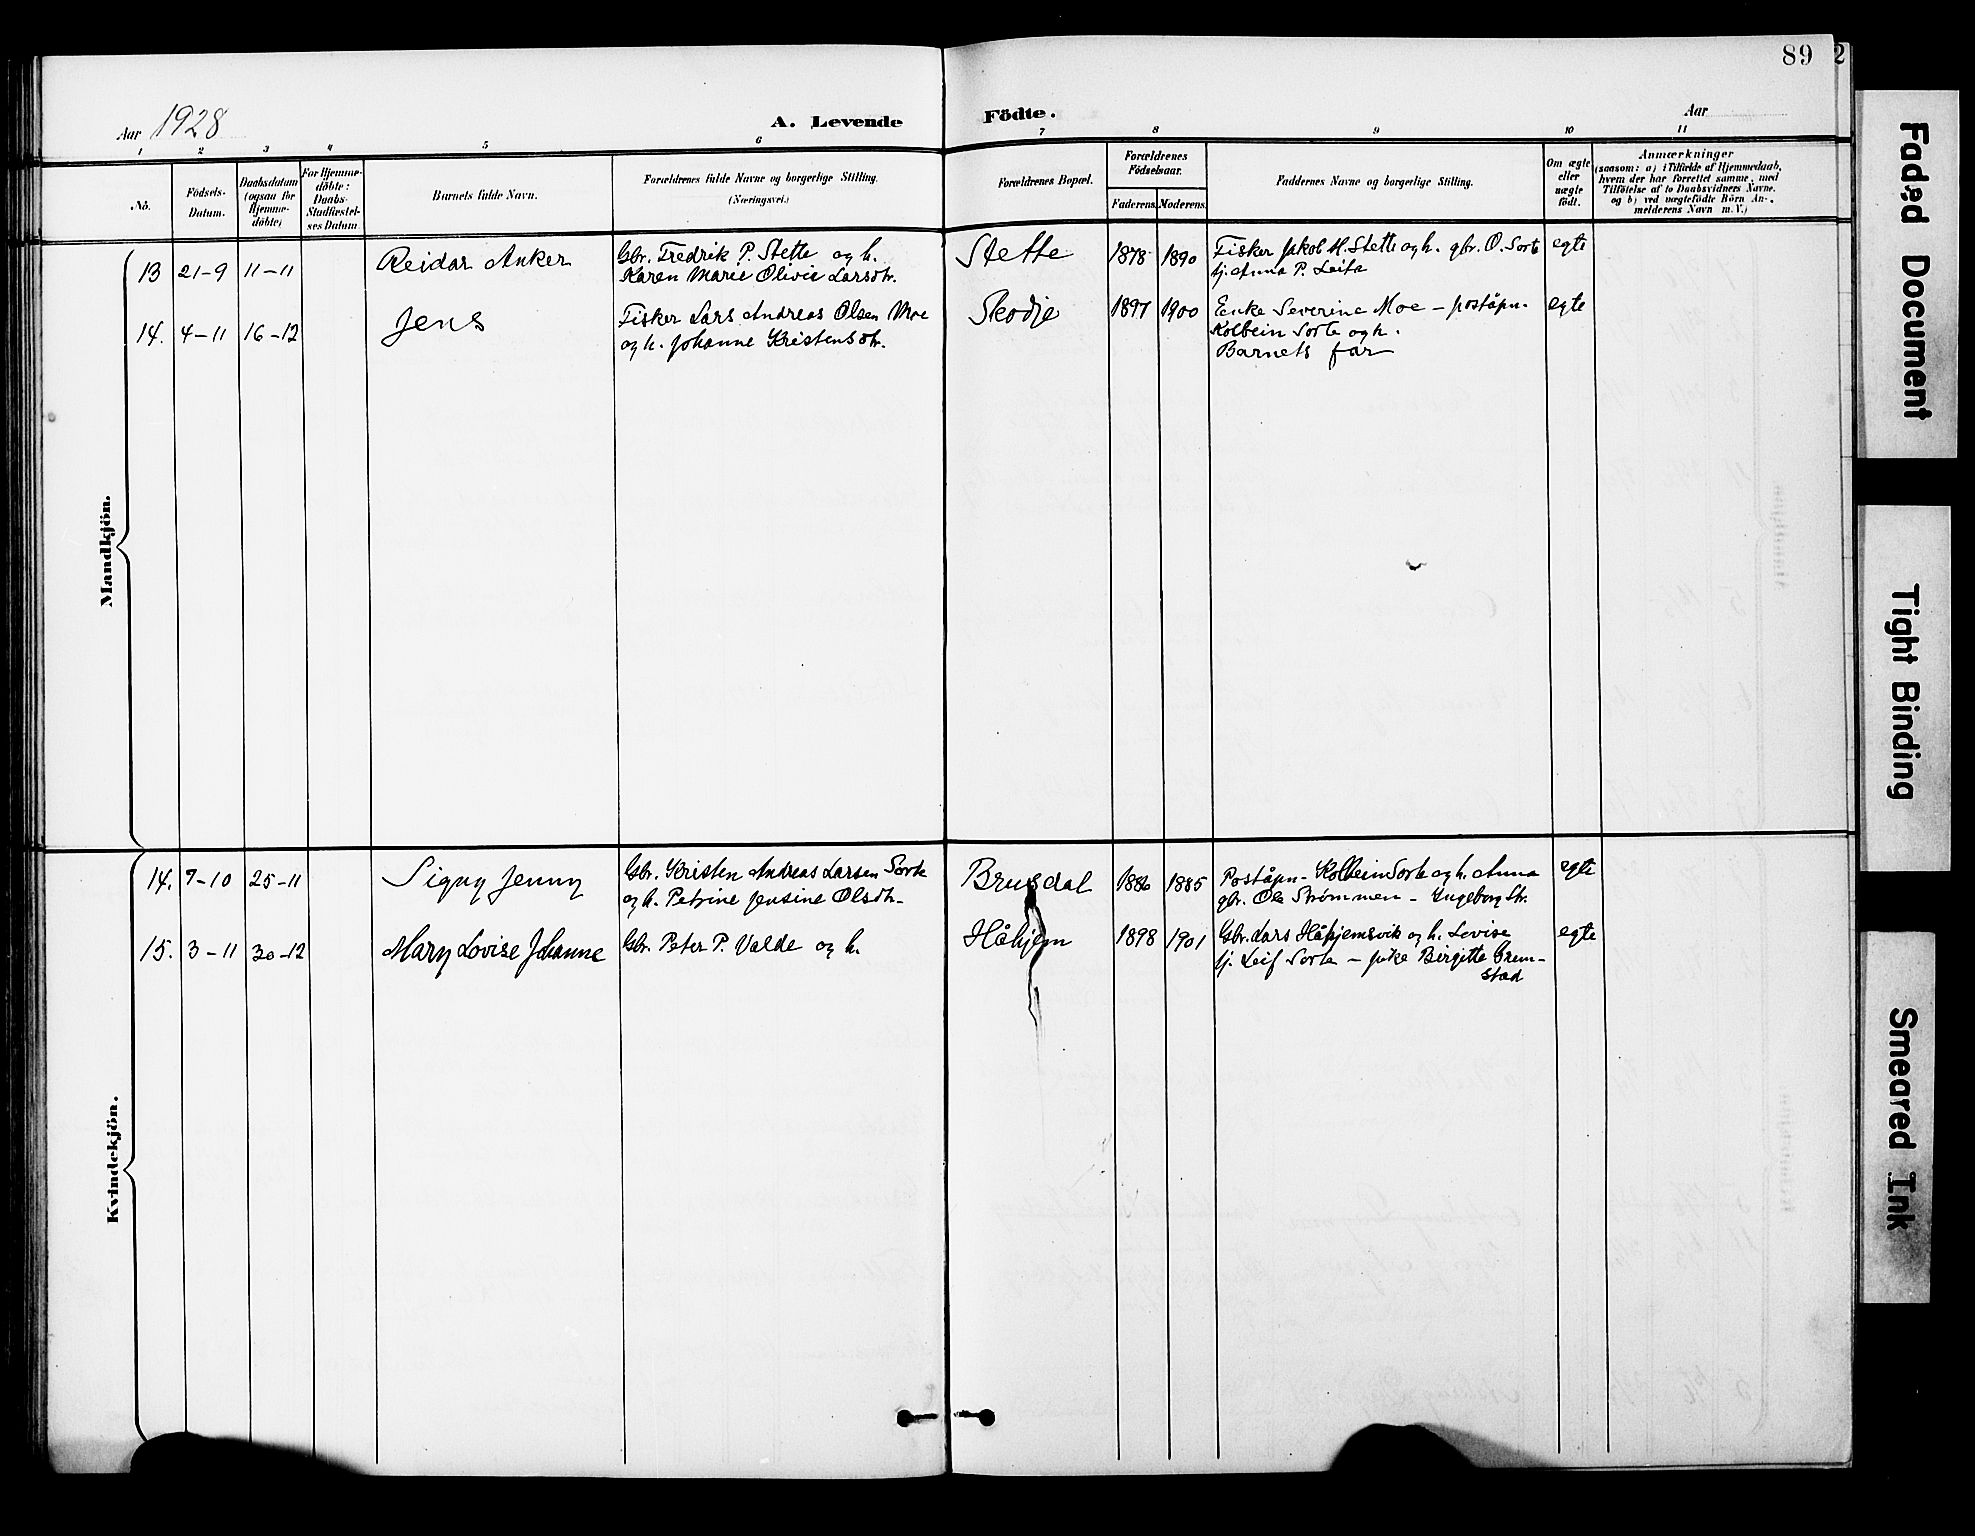 89 2
Aar 1928 A. Levende Födte. Aar
1 2 3 4 5 6 7 8 9 10 11
No.
Födsels-
Datum.
Daabsdatum
(ogsaa for
Hjemme-
döbte)
For Hjemme-
döbte:
Daabs-
Stadfæstel-
ses Datum.
Barnets fulde Navn.
Forældrenes fulde Navne og borgerlige Stilling.
(Næringsvei.)
Forældrenes Bopæl.
Forældrenes
Födselsaar.
Faderens. Moderens.
Faddernes Navne og borgerlige Stilling.
Om ægte
eller
uægte
födt.
Anmærkninger
(saasom: a) i Tilfælde af Hjemmedaab,
hvem der har forrettet samme, med
Tilföielse af to Daabsvidners Navne.
og b) ved uægtefödte Börn An-
melderens Navn m. V.)
Mandkjön.
13 21-9 11-11 Reidar Anker
Gbr. Fredrik P. Stette og h.
Karen Marie Olivie Larsdtr.
Stette 1878 1890
Fisker Jakob H. Stette og h. gbr. O. Sorte
tj. Anna P. Leita
egte
14. 4-11 16-12 Jens
Fisker Lars Andreas Olsen Moe
og h. Johanne Kristensdtr.
Skodje 1897 1900
Enke Severine Moe - poståpn.
Kolbein Sorte og h.
Barnets far
egte
Kvindekjön.
14. 7-10 25-11 Signy Jenny
Gbr. Kristen Andreas Larsen Sorte
og h. Petrine Jensine Olsdtr.
Brusdal 1886 1885
Poståpn- Kolbein Sorte og h. Anna
gbr. Ole Strømmen - Ingeborg Str.
egte
15. 3-11 30-12 Mary Lovise Johanne
Gbr. Peter P. Valde og h.
Håhjem 1898 1901
Gbr. Lars Håhjemsvik og h. Lovise
tj. Leif Sorte - pike Birgitte Grem-
stad
egte
Faded Document
Tight Binding
Smeared Ink